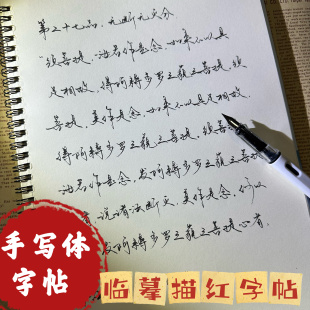 第二十七品，无断无灭分
"须菩提，汝若作是念，如来不以具
足相故，得阿耨多罗三藐三菩提，须
菩提，莫作是念，如来不以具足相故，
得阿耨多罗三藐三菩提，须菩提，
汝若作是念，发阿耨多罗三藐三菩提
者，说诸法断灭，莫作是念，何以
发阿耨多罗三藐三菩提心者，
手写体
字帖
临摹描红字帖